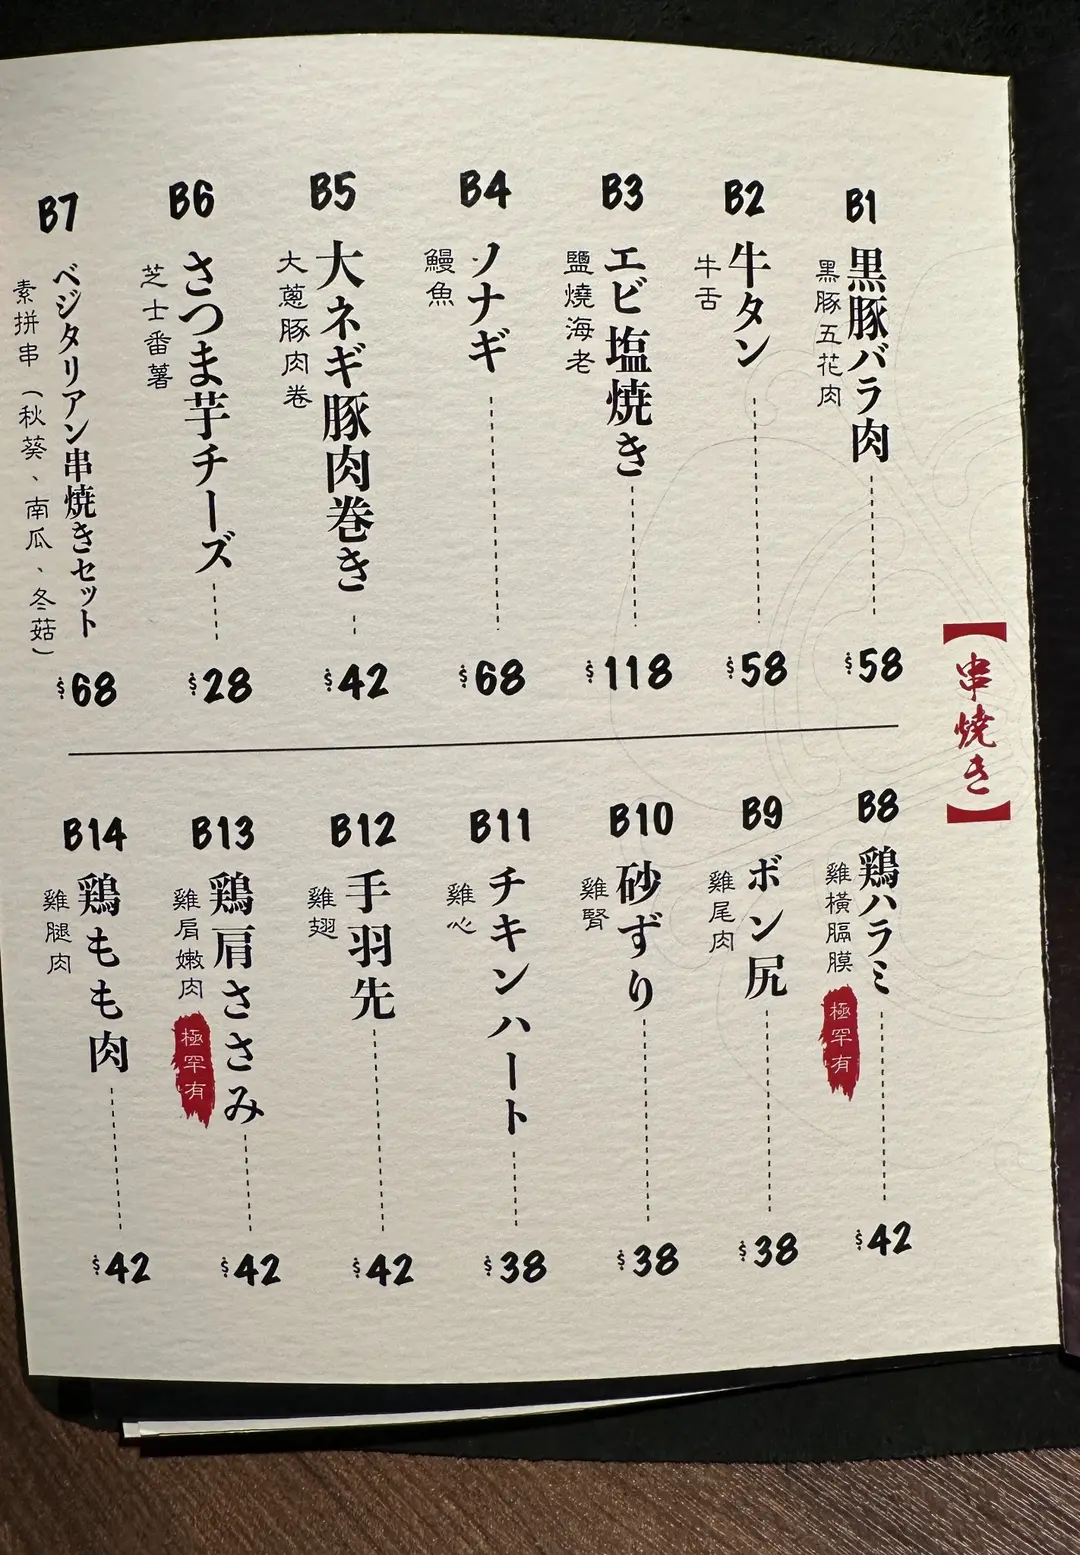 【串焼き】
B1
黒豚バラ肉
黒豚五花肉
$58
B2
牛タン
牛舌
$58
B3
エビ塩焼き
鹽燒海老
$118
B4
ノナギ
鰻魚
$68
B5
大ネギ豚肉巻き
大蔥豚肉卷
$42
B6
さつま芋チーズ
芝士番薯
$28
B7
ベジタリアン串焼きセット
素拼串（秋葵、南瓜、冬菇）
$68
B8
鶏ハラミ
雞橫膈膜
極罕有
$42
B9
ボン尻
雞尾肉
$38
B10
砂ずり
雞腎
$38
B11
チキンハート
雞心
$38
B12
手羽先
雞翅
$42
B13
鶏肩ささみ
雞肩嫩肉
極罕有
$42
B14
鶏もも肉
雞腿肉
$42